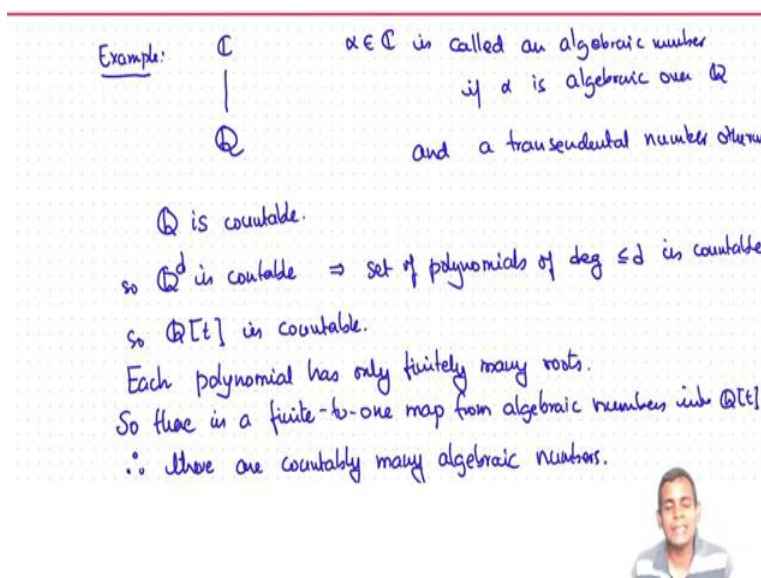 Example: ℂ α ∈ ℂ is called an algebraic number
| if α is algebraic over ℚ
ℚ and a transendental number otherw
ℚ is countable.
so ℚ^d is coutable ⇒ set of polynomials of deg ≤ d is countable
so ℚ[t] is countable.
Each polynomial has only finitely many roots.
So there is a finite-to-one map from algebraic numbers into ℚ[t]
∴ there are countably many algebraic numbers.